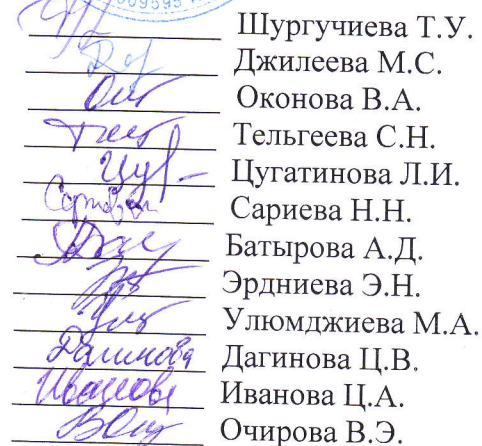 009595
Шургучиева Т.У.
Джилеева М.С.
Оконова В.А.
Тельгеева С.Н.
Цугатинова Л.И.
Сариева Н.Н.
Батырова А.Д.
Эрдниева Э.Н.
Улюмджиева М.А.
Дагинова Ц.В.
Иванова Ц.А.
Очирова В.Э.